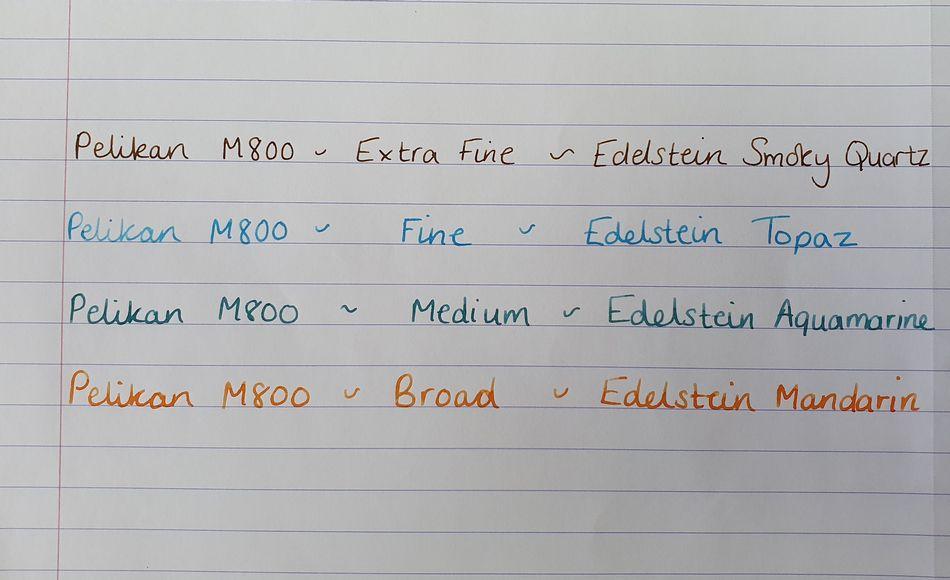 Pelikan M800 ~ Extra Fine ~ Edelstein Smoky Quartz
Pelikan M800 ~ Fine ~ Edelstein Topaz
Pelikan M800 ~ Medium ~ Edelstein Aquamarine
Pelikan M800 ~ Broad ~ Edelstein Mandarin